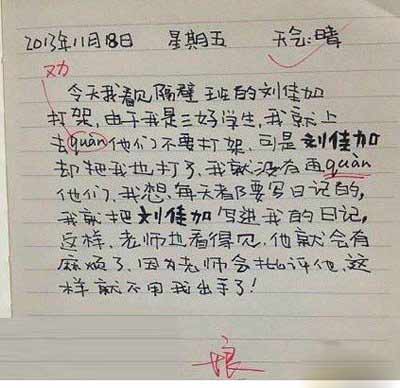 2013年11月18日 星期五 天气:晴
劝
今天我看见隔壁班的刘佳加
打架,由于我是三好学生,我就上
去quàn他们不要打架,可是刘佳加
却把我也打了,我就没有再quàn
他们,我想每天都要写日记的,
我就把刘佳加写进我的日记,
这样,老师也看得见,他就会有
麻烦了,因为老师会批评他,这
样就不用我出手了!